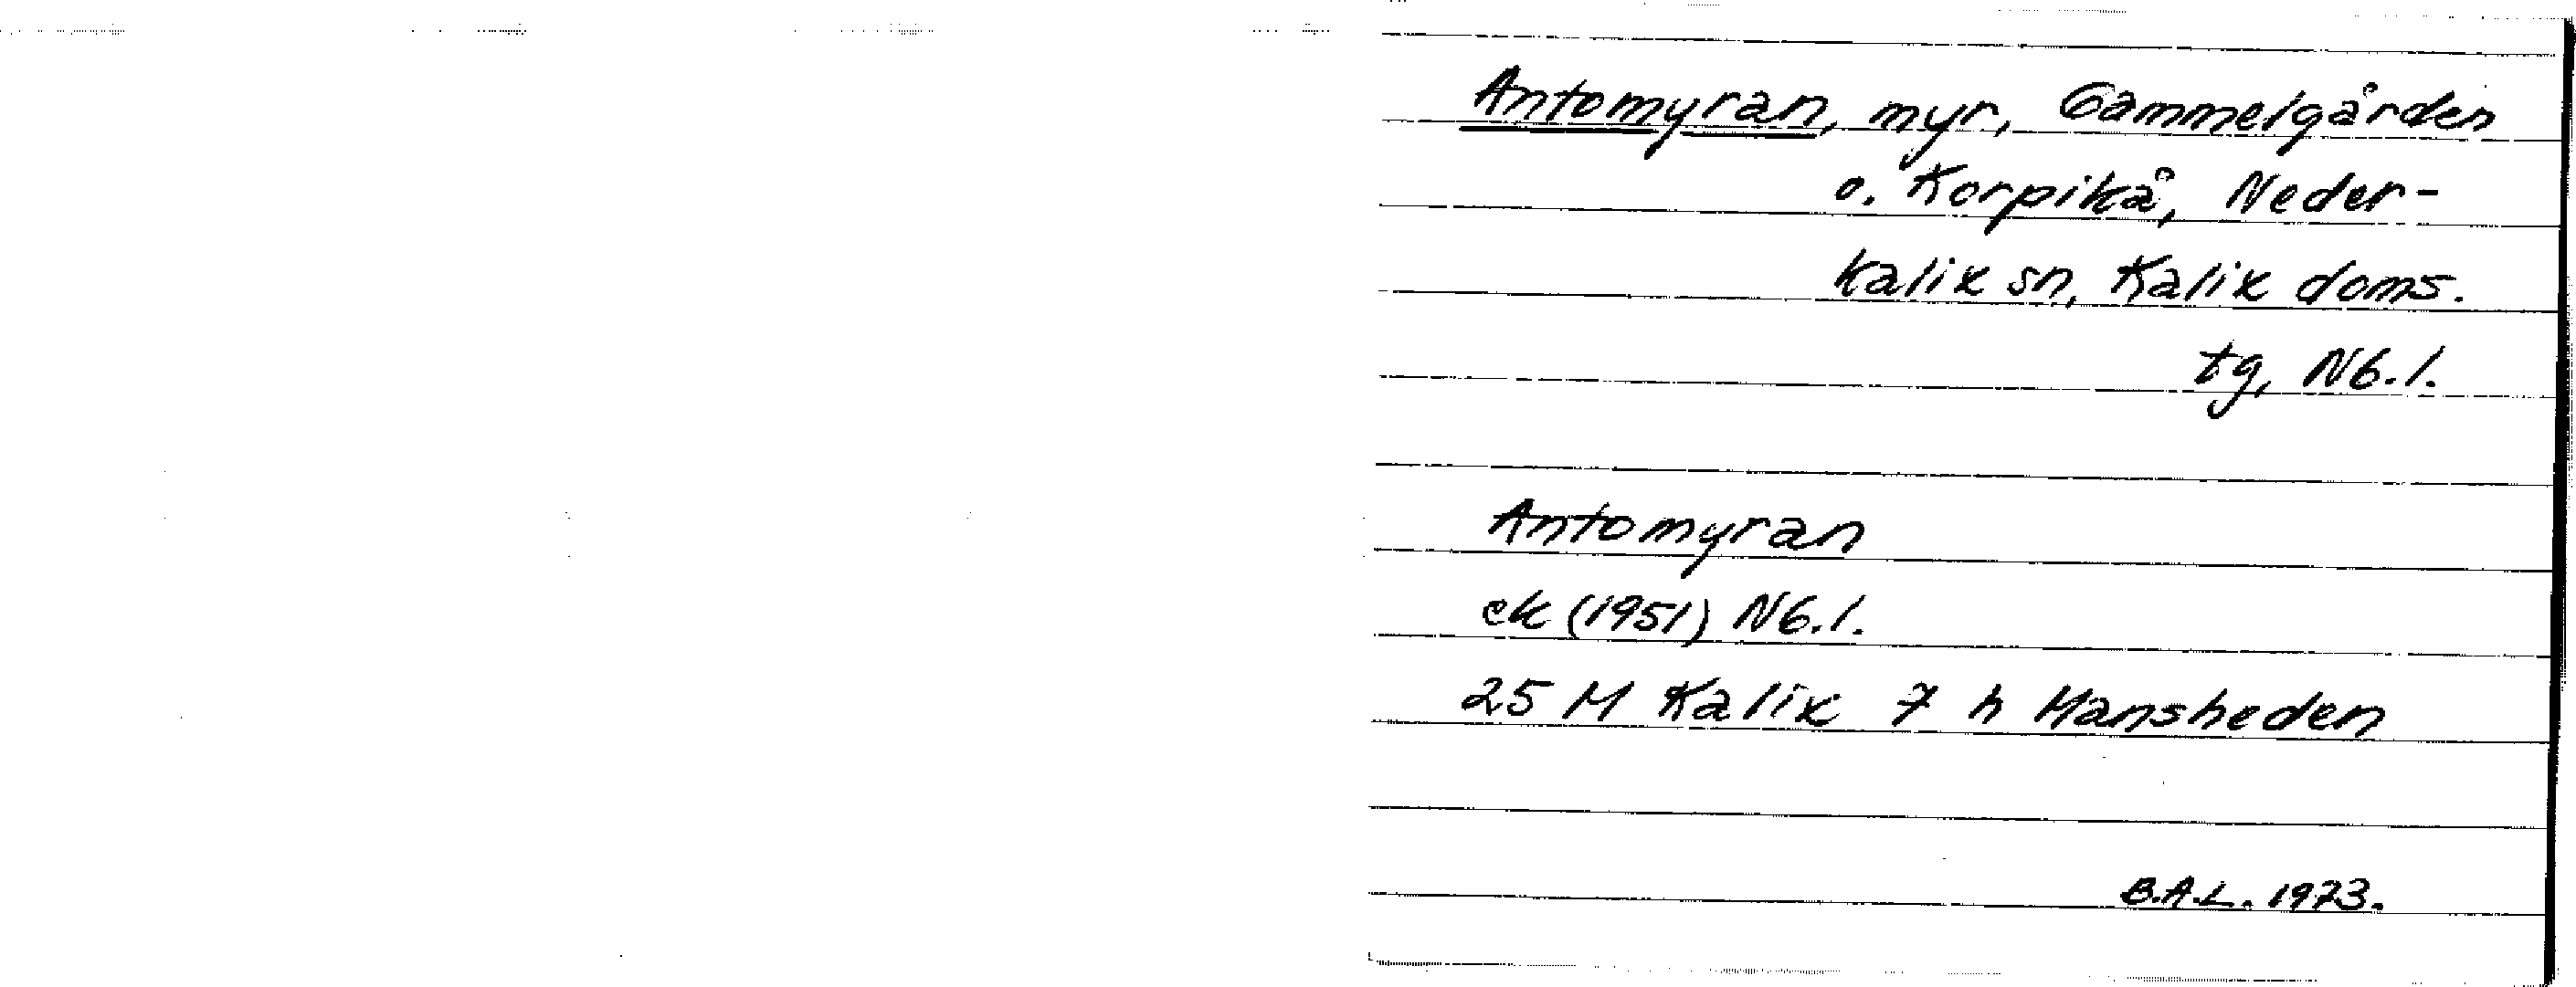 Antomyran, myr, Gammelgården
o. Korpikå, Neder-
kalix sn, Kalix doms.
tg, Nb.l.
Antomyran
ek (1951) Nb.l.
25 M Kalix 7 h Mansheden
B.A.L. 1973.